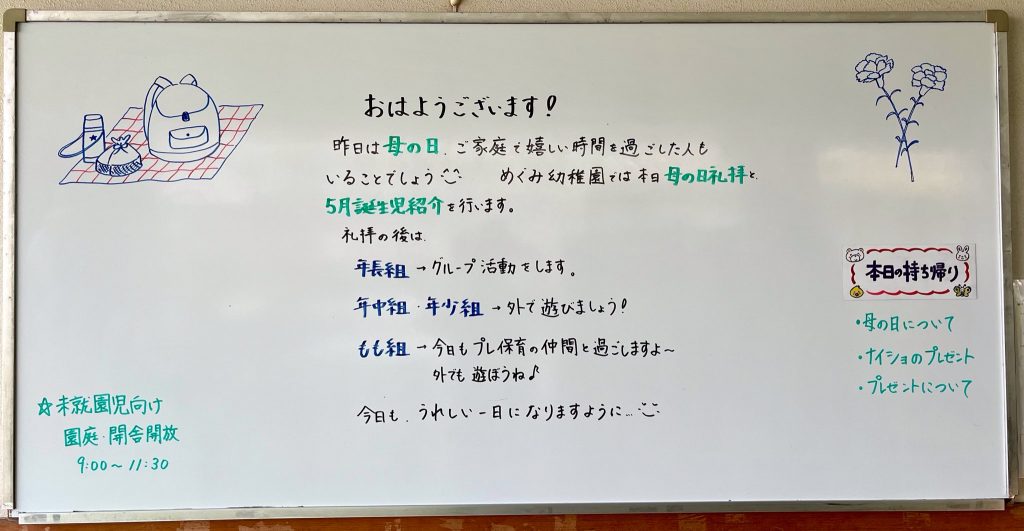 おはようございます!
昨日は母の日、ご家庭で嬉しい時間を過ごした人も
いることでしょう めぐみ幼稚園では本日母の日礼拝と
5月誕生児紹介を行います。
礼拝の後は、
年長組→グループ活動をします。
年中組・年少組→外で遊びましょう!
もも組→今日もプレ保育の仲間と過ごしますよ~
外でも遊ぼうね♪
今日も、うれしい一日になりますように…
☆未就園児向け
園庭・開舎開放
9:00~11:30
本日の持ち帰り
・母の日について
・ナイショのプレゼント
・プレゼントについて